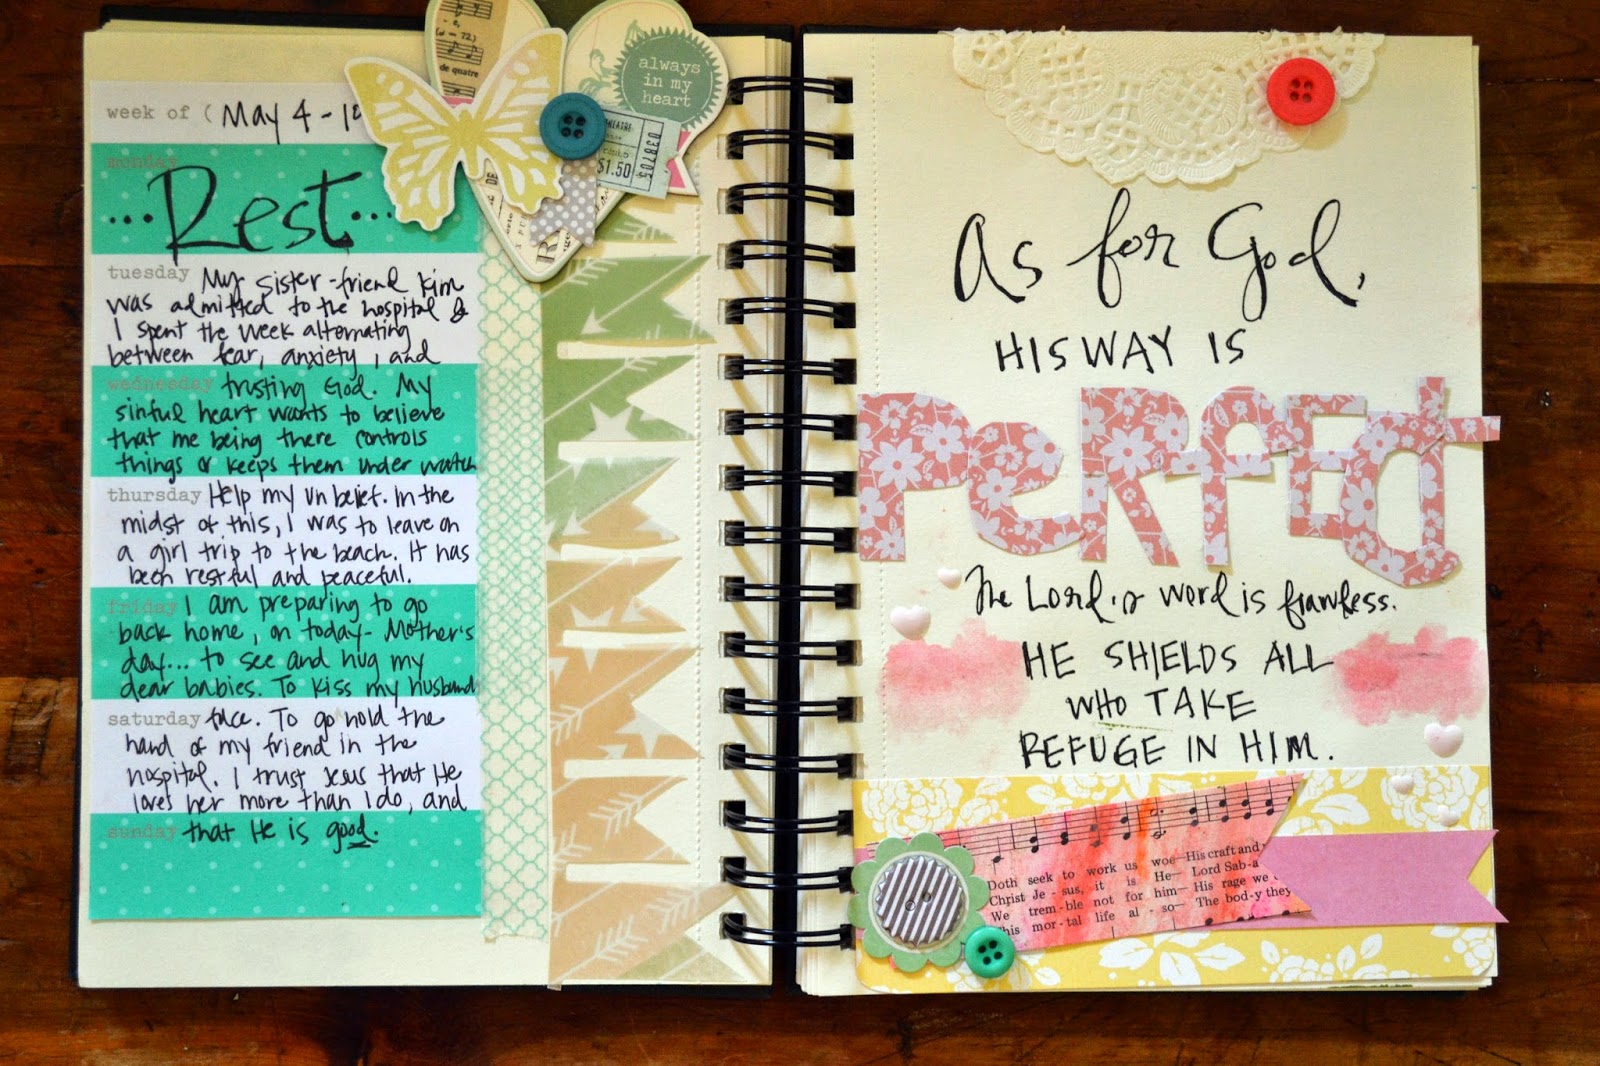 week of ( May 4 - 10
monday
...Rest...
tuesday My sister-friend Kim
was admitted to the hospital &
I spent the week alternating
between fear, anxiety, and
wednesday trusting God. My
sinful heart wants to believe
that me being there controls
things or keeps them under watch
thursday Help my unbelief. In the
midst of this, I was to leave on
a girl trip to the beach. It has
been restful and peaceful.
friday I am preparing to go
back home, on today - Mother's
day... to see and hug my
dear babies. To kiss my husband
saturday face. To go hold the
hand of my friend in the
hospital. I trust Jesus that He
loves her more than I do, and
sunday that He is good.
(♩ = 72)
de quatre
always
in my
heart
THEATRE
$1.50
038705
As for God,
HIS WAY IS
PeRfEct
The Lord's word is flawless.
HE SHIELDS ALL
WHO TAKE
REFUGE IN HIM.
Doth seek to work us woe—His craft and
Christ Je - sus, it is He— Lord Sab-a
We trem-ble not for him— His rage we
This mor-tal life al - so— The bod-y they